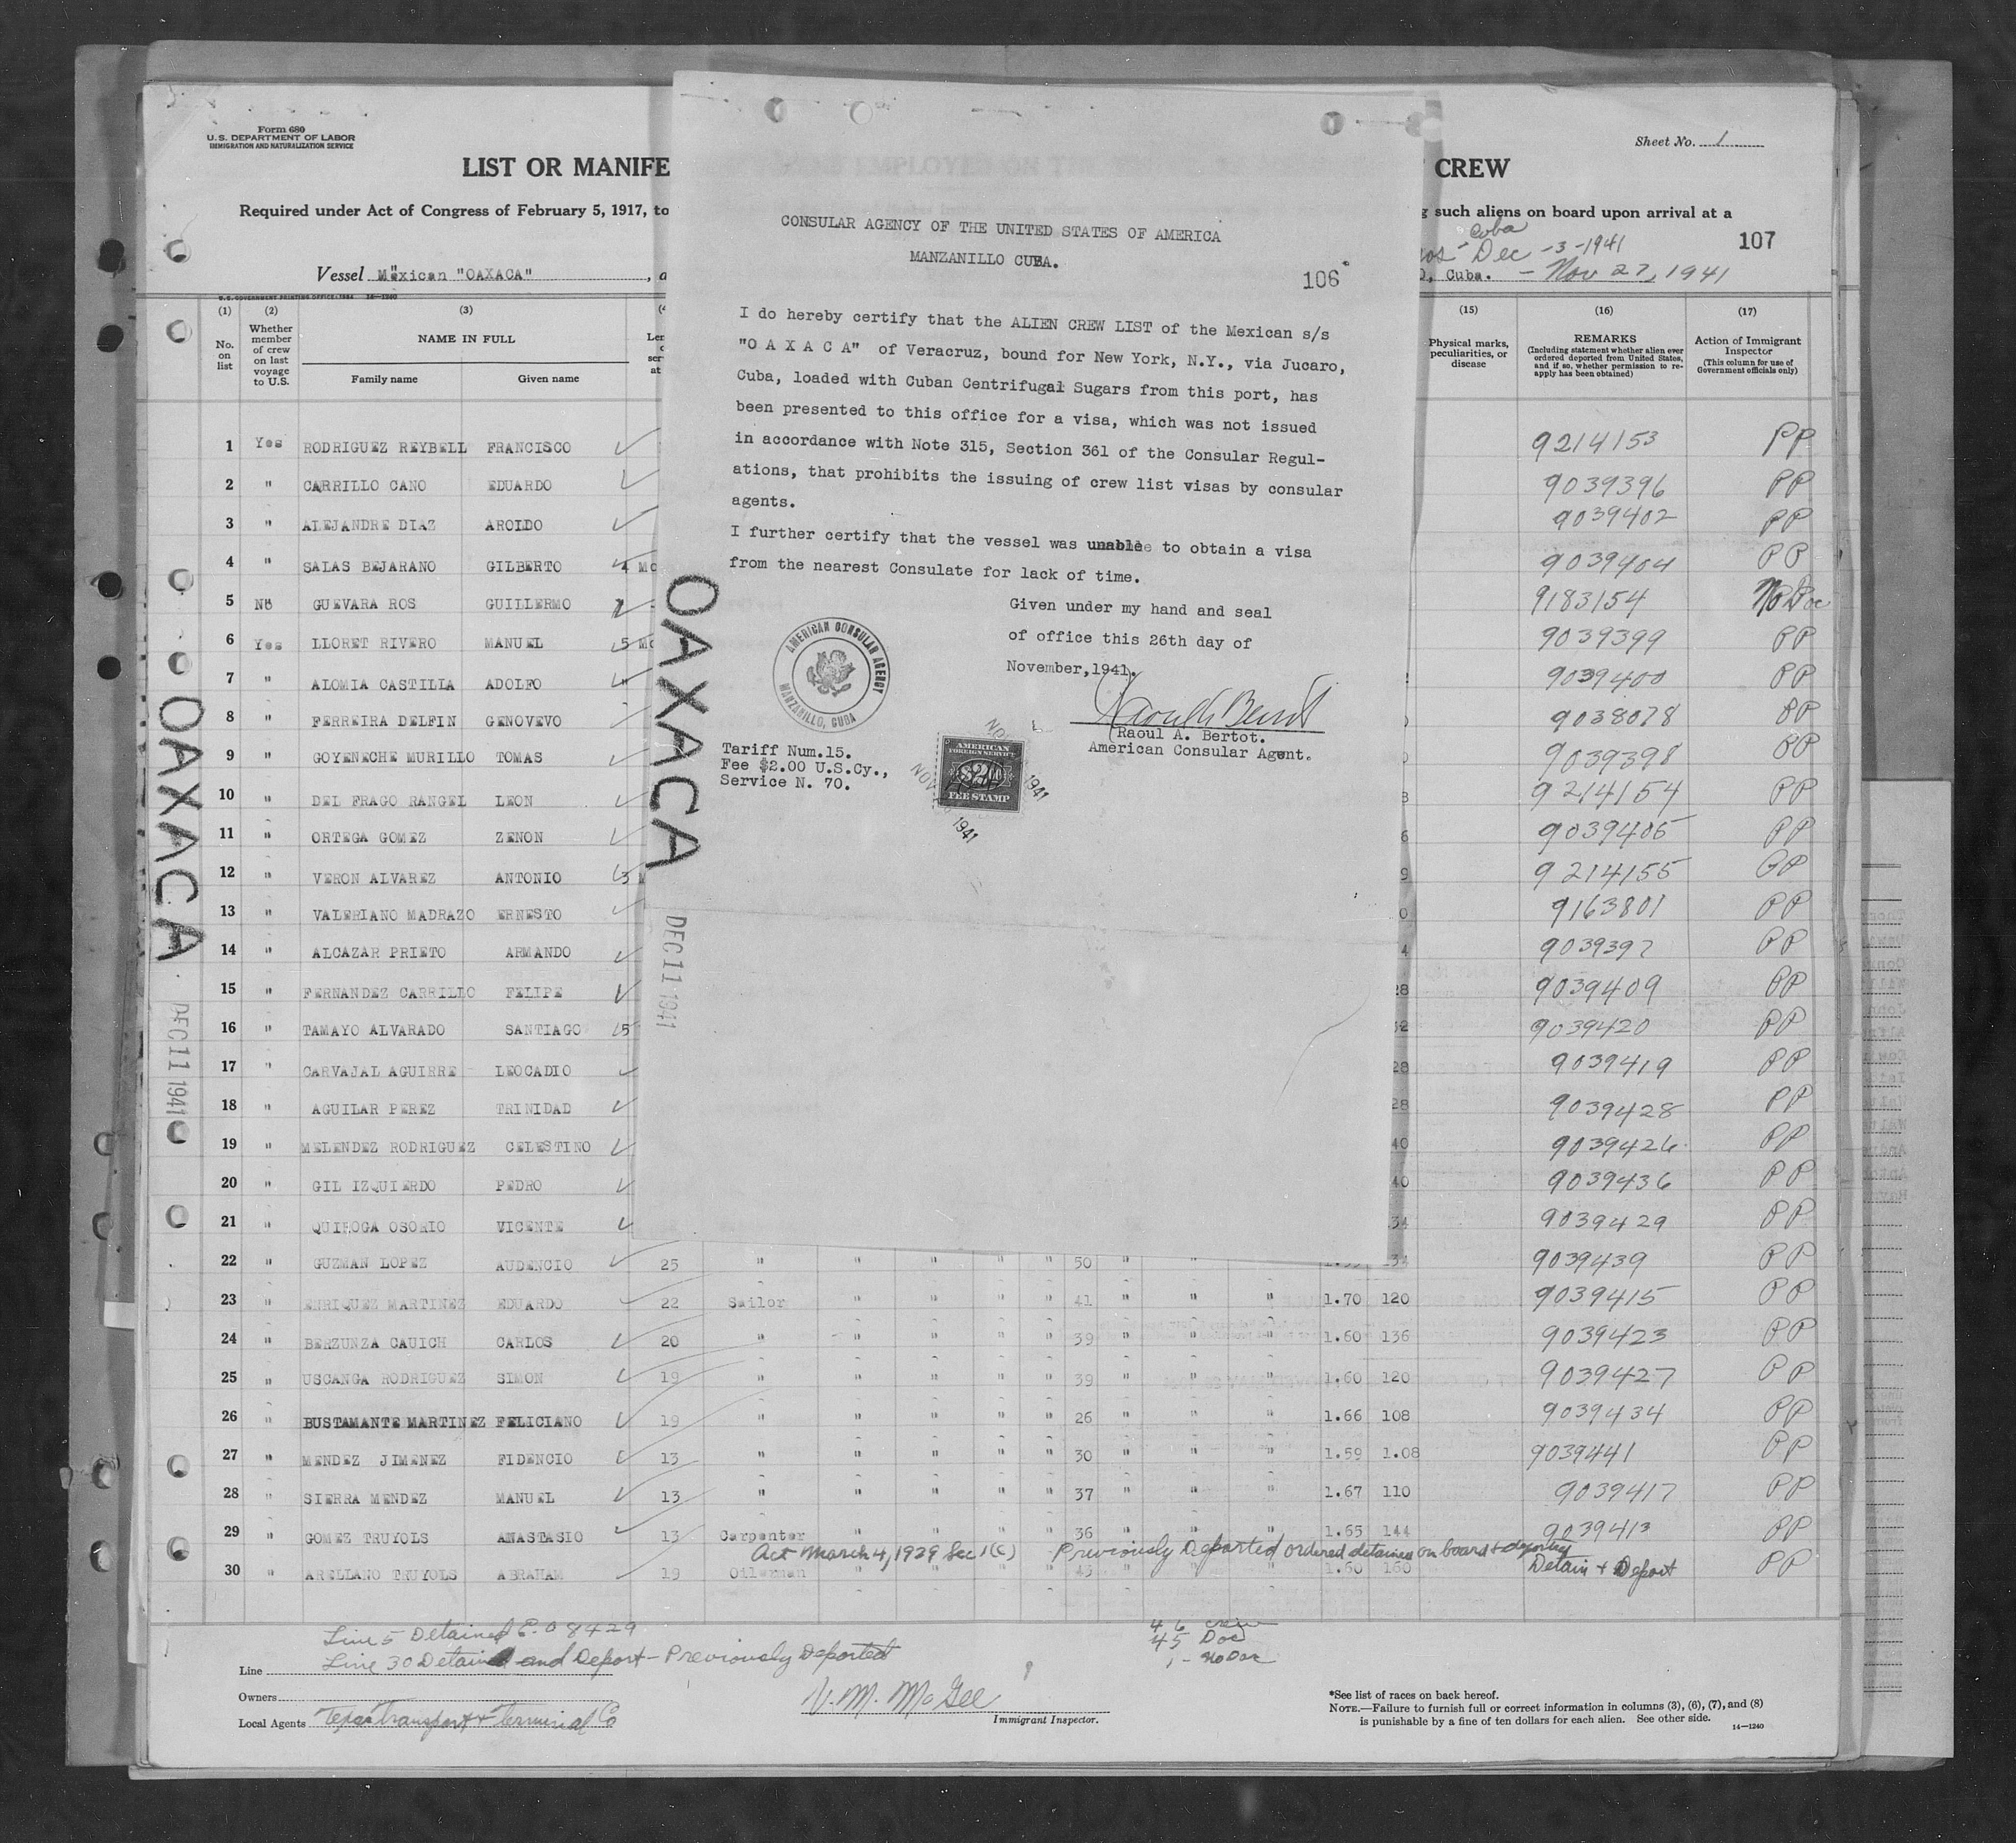 Form 680
U.S. DEPARTMENT OF LABOR
IMMIGRATION AND NATURALIZATION SERVICE
Sheet No. 1
LIST OR MANIFE
CREW
Required under Act of Congress of February 5, 1917, to
g such aliens on board upon arrival at a
Cuba
Dec -3-1941
107
Vessel Mexican "OAXACA" , a
, Cuba. - Nov 27, 1941
U.S. GOVERNMENT PRINTING OFFICE: 1934 14—1240
(1) (2) (3) (15) (16) (17)
No. on list
Whether member of crew on last voyage to U.S.
NAME IN FULL
Family name Given name
Physical marks, peculiarities, or disease
REMARKS
(Including statement whether alien ever ordered deported from United States, and if so, whether permission to reapply has been obtained)
Action of Immigrant Inspector
(This column for use of Government officials only)
CONSULAR AGENCY OF THE UNITED STATES OF AMERICA
MANZANILLO CUBA.
106
I do hereby certify that the ALIEN CREW LIST of the Mexican s/s
"O A X A C A" of Veracruz, bound for New York, N.Y., via Jucaro,
Cuba, loaded with Cuban Centrifugal Sugars from this port, has
been presented to this office for a visa, which was not issued
in accordance with Note 315, Section 361 of the Consular Regul-
ations, that prohibits the issuing of crew list visas by consular
agents.
I further certify that the vessel was unable to obtain a visa
from the nearest Consulate for lack of time.
Given under my hand and seal
of office this 26th day of
November, 1941.
AMERICAN CONSULAR AGENCY
MANZANILLO, CUBA
Raoul A. Bertot.
American Consular Agent.
Tariff Num.15.
Fee $2.00 U.S.Cy.,
Service N. 70.
AMERICAN
FOREIGN SERVICE
$2.00
FEE STAMP
1941
1941
OAXACA
DEC 11 1941
OAXACA
DEC 11 1941
1 Yes RODRIGUEZ REYBELL FRANCISCO 9214153 PP
2 " CARRILLO CANO EDUARDO 9039396 PP
3 " ALEJANDRE DIAZ AROLDO 9039402 PP
4 " SALAS BEJARANO GILBERTO 9039404 PP
5 No GUEVARA ROS GUILLERMO 9183154 No Doc
6 Yes LLORET RIVERO MANUEL 5 Mo 9039399 PP
7 " ALOMIA CASTILLA ADOLFO 9039400 PP
8 " FERREIRA DELFIN GENOVEVO 9038078 PP
9 " GOYENECHE MURILLO TOMAS 9039398 PP
10 " DEL FRAGO RANGEL LEON 9214154 PP
11 " ORTEGA GOMEZ ZENON 9039405 PP
12 " VERON ALVAREZ ANTONIO 9214155 PP
13 " VALERIANO MADRAZO ERNESTO 9163801 PP
14 " ALCAZAR PRIETO ARMANDO 9039397 PP
15 " FERNANDEZ CARRILLO FELIPE 9039409 PP
16 " TAMAYO ALVARADO SANTIAGO 9039420 PP
17 " CARVAJAL AGUIRRE LEOCADIO 9039419 PP
18 " AGUILAR PEREZ TRINIDAD 9039428 PP
19 " MELENDEZ RODRIGUEZ CELESTINO 9039426 PP
20 " GIL IZQUIERDO PEDRO 9039436 PP
21 " QUIROGA OSORIO VICENTE 9039429 PP
22 " GUZMAN LOPEZ AUDENCIO 25 " " " " " 50 " " " 9039439 PP
23 " ENRIQUEZ MARTINEZ EDUARDO 22 Sailor " " " " 41 " " " 1.70 120 9039415 PP
24 " BERZUNZA CAUICH CARLOS 20 " " " " " 39 " " " 1.60 136 9039423 PP
25 " USCANGA RODRIGUEZ SIMON 19 " " " " " 39 " " " 1.60 120 9039427 PP
26 " BUSTAMANTE MARTINEZ FELICIANO 19 " " " " " 26 " " " 1.66 108 9039434 PP
27 " MENDEZ JIMENEZ FIDENCIO 13 " " " " " 30 " " " 1.59 1.08 9039441 PP
28 " SIERRA MENDEZ MANUEL 13 " " " " " 37 " " " 1.67 110 9039417 PP
29 " GOMEZ TRUYOLS ANASTASIO 13 Carpenter " " " " 36 " " " 1.65 144 9039413 PP
Act March 4, 1929 Sec 1(c) Previously Deported ordered detained on board & deported
30 " ARELLANO TRUYOLS ABRAHAM 19 Oilerman " " " " 45 " " " 1.60 160 Detain + Deport PP
Line 5 Detained E.O 8429
Line 30 Detained and Deport - Previously Deported
46 crew
45 Doc
1 - No Doc
Line
Owners
Local Agents Texas Transport + Terminal Co
V. M. McGee
Immigrant Inspector.
*See list of races on back hereof.
NOTE.—Failure to furnish full or correct information in columns (3), (6), (7), and (8)
is punishable by a fine of ten dollars for each alien. See other side.
14—1240